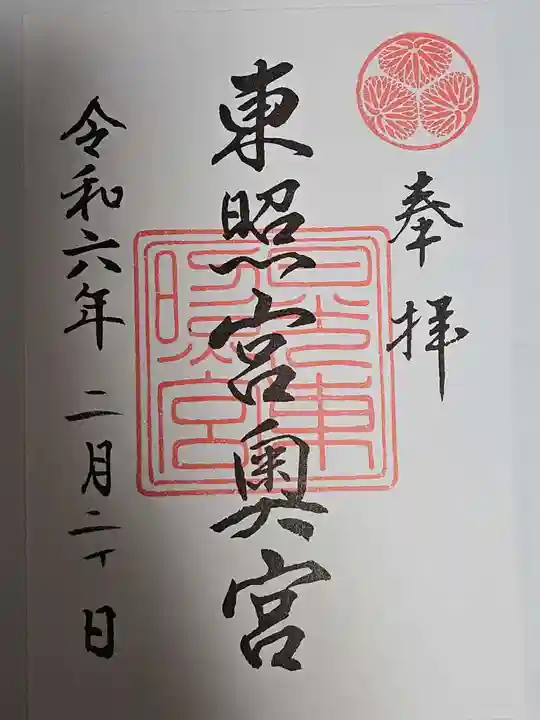 奉拝
東照宮奥宮
日光東
照宮
令和六年二月二十日